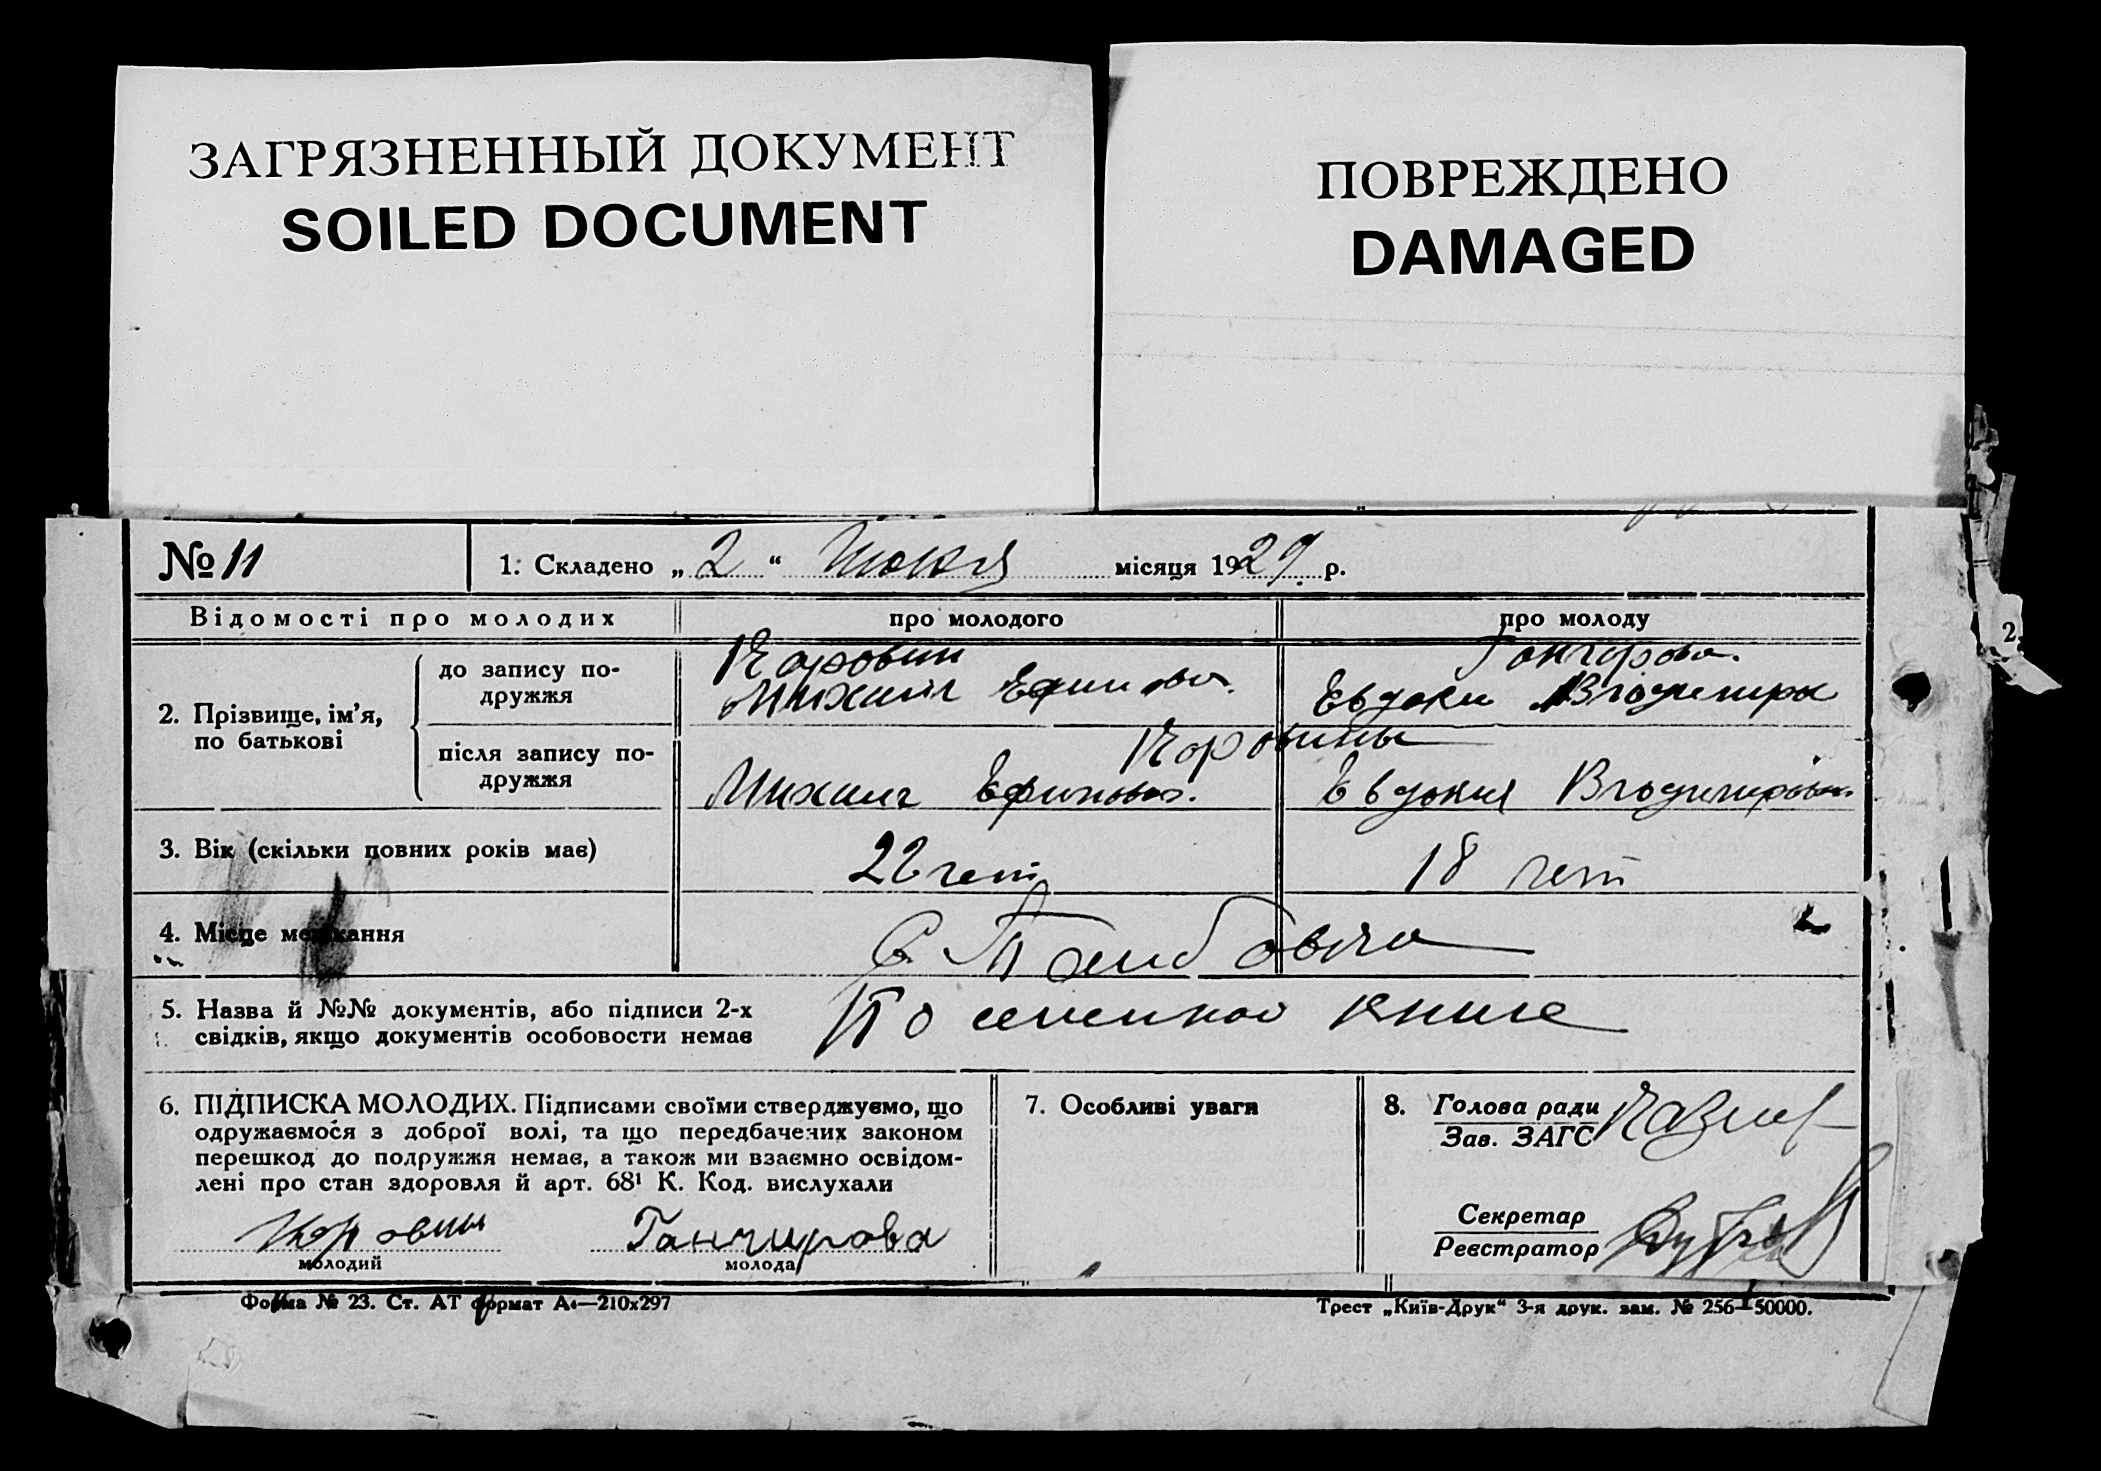 ЗАГРЯЗНЕННЫЙ ДОКУМЕНТ
SOILED DOCUMENT
ПОВРЕЖДЕНО
DAMAGED
№ 11
1. Складено „ 2 “ Июля місяця 1929 р.
Відомості про молодих
про молодого
про молоду
2. Прізвище, ім’я,
по батькові
до запису по-
дружжя
Коровин
Михаил Ефимов.
Гончарова.
Евдоки Владимира
після запису по-
дружжя
Коровины
Михаил Ефимович.
Евдокия Владимировн.
3. Вік (скільки повних років має)
22 лет
18 лет
4. Місце мешкання
С
2
5. Назва й №№ документів, або підписи 2-х
свідків, якщо документів особовости немає
По семейной книге
6. ПІДПИСКА МОЛОДИХ. Підписами своїми стверджуємо, що
одружаємося з доброї волі, та що передбачених законом
перешкод до подружжя немає, а також ми взаємно освідом-
лені про стан здоровля й арт. 68¹ К. Код. вислухали
Коровин
молодий
Ганчирова
молода
7. Особливі уваги
8. Голова ради
Зав. ЗАГС
Секретар
Реєстратор
Форма № 23. Ст. АТ формат А4—210x297
Трест „Київ-Друк“ 3-я друк. зам. № 256—50000.